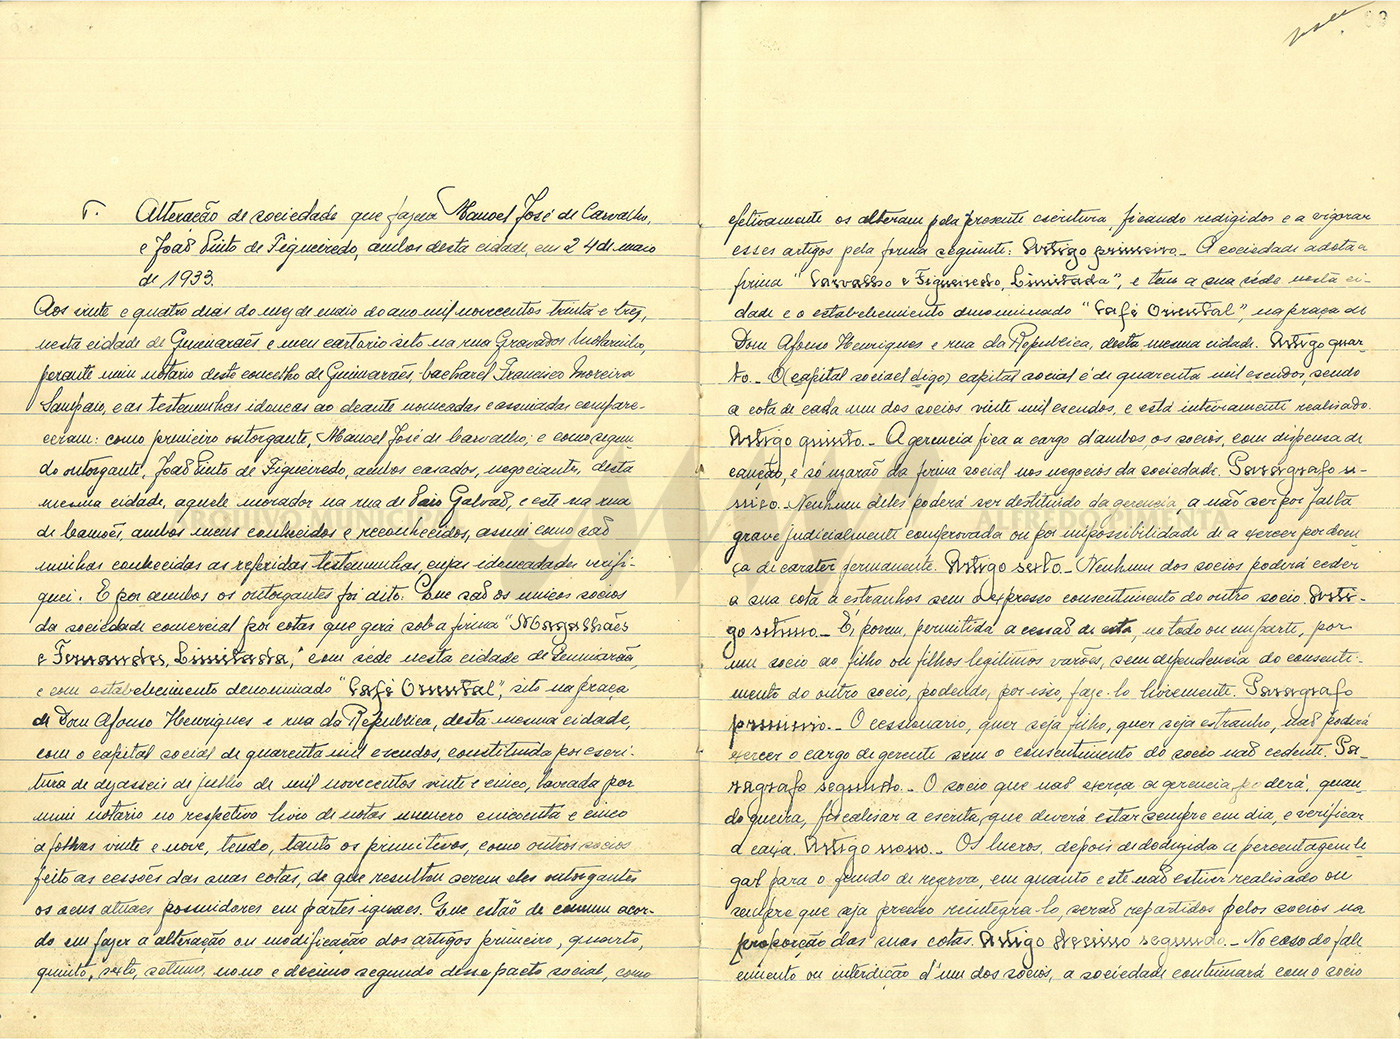 T. Alteração de sociedade que fazem Manoel José de Carvalho,
e João Pinto de Figueiredo, ambos desta cidade, em 24 de maio
de 1933.
Aos vinte e quatro dias do mez de maio do ano mil novecentos trinta e trez,
nesta cidade de Guimarães e meu cartorio sito na rua Gravador Molarinho,
perante mim notario deste concelho de Guimarães, bacharel Francisco Moreira
Sampaio, e as testemunhas idoneas ao deante nomeadas e assinadas compare-
ceram: como primeiro outorgante, Manoel José de Carvalho; e como segun
do outorgante, João Pinto de Figueiredo, ambos casados, negociantes, desta
mesma cidade, aquele morador na rua de Paio Galvão, e este na rua
de Camões, ambos meus conhecidos e reconhecidos, assim como são
minhas conhecidas as referidas testemunhas, cujas idoneidades verifi-
quei. E por ambos os outorgantes foi dito: Que são os unicos socios
da sociedade comercial por cotas que gera sob a firma "Magalhães
e Fernandes, Limitada," com séde nesta cidade de Guimarães,
e com estabelecimento denominado "Café Oriental", sito na praça
de Dom Afonso Henriques e rua da Republica, desta mesma cidade,
com o capital social de quarenta mil escudos, constituida por escri-
tura de dezasseis de julho de mil novecentos vinte e cinco, lavrada por
mim notario no respetivo livro de notas numero cincoenta e cinco
a folhas vinte e nove, tendo, tanto os primitivos, como outros socios
feito as cessões das suas cotas, de que resultou serem eles outorgantes
os seus atuaes possuidores em partes iguaes. Que estão de comum acor-
do em fazer a alteração ou modificação dos artigos primeiro, quarto,
quinto, sexto, setimo, nono e decimo segundo desse pacto social, como
efetivamente os alteram pela presente escritura, ficando redigidos e a vigorar
esses artigos pela forma seguinte: Artigo primeiro._ A sociedade adota a
firma "Carvalho e Figueiredo, Limitada", e tem a sua séde nesta ci-
dade e o estabelecimento denominado "Café Oriental", na praça de
Dom Afonso Henriques e rua da Republica, desta mesma cidade. Artigo quar-
to._ O (capital sociael digo) capital social é de quarenta mil escudos, sendo
a cota de cada um dos socios vinte mil escudos, e está inteiramente realisado.
Artigo quinto._ A gerencia fica a cargo d'ambos, os socios, com dispensa de
caução, e só usarão da firma social nos negocios da sociedade. Paragrafo u-
nico. Nenhum deles poderá ser destituido da gerencia, a não ser por falta
grave judicialmente comprovada ou por impossibilidade de a exercer por doen-
ça de carater permanente. Artigo sexto._ Nenhum dos socios poderá ceder
a sua cota a estranhos sem o expresso consentimento do outro socio. Arti-
go setimo._ É, porem, permitida a cessão de esta, no todo ou em parte, por
um socio ao filho ou filhos legitimos varões, sem dependencia do consenti-
mento do outro socio, podendo, por isso, faze-lo livremente. Paragrafo
primeiro._ O cessionario, quer seja filho, quer seja estranho, não poderá
exercer o cargo de gerente sem o consentimento do socio não cedente. Pa-
ragrafo segundo._ O socio que não exerça a gerencia poderá, quan-
do queira, fiscalisar a escrita, que deverá estar sempre em dia, e verificar
a caixa. Artigo nono._ Os lucros, depois de deduzida a percentagem le-
gal para o fundo de reserva, em quanto este não estiver realisado ou
sempre que seja preciso reintegra-lo, serão repartidos pelos socios na
proporção das suas cotas. Artigo decimo segundo._ No caso do fale-
cimento ou interdição d'um dos socios, a sociedade continuará com o socio